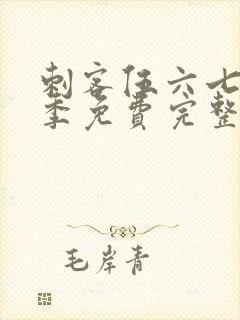 刺客伍六七
季免費完整
毛岸青